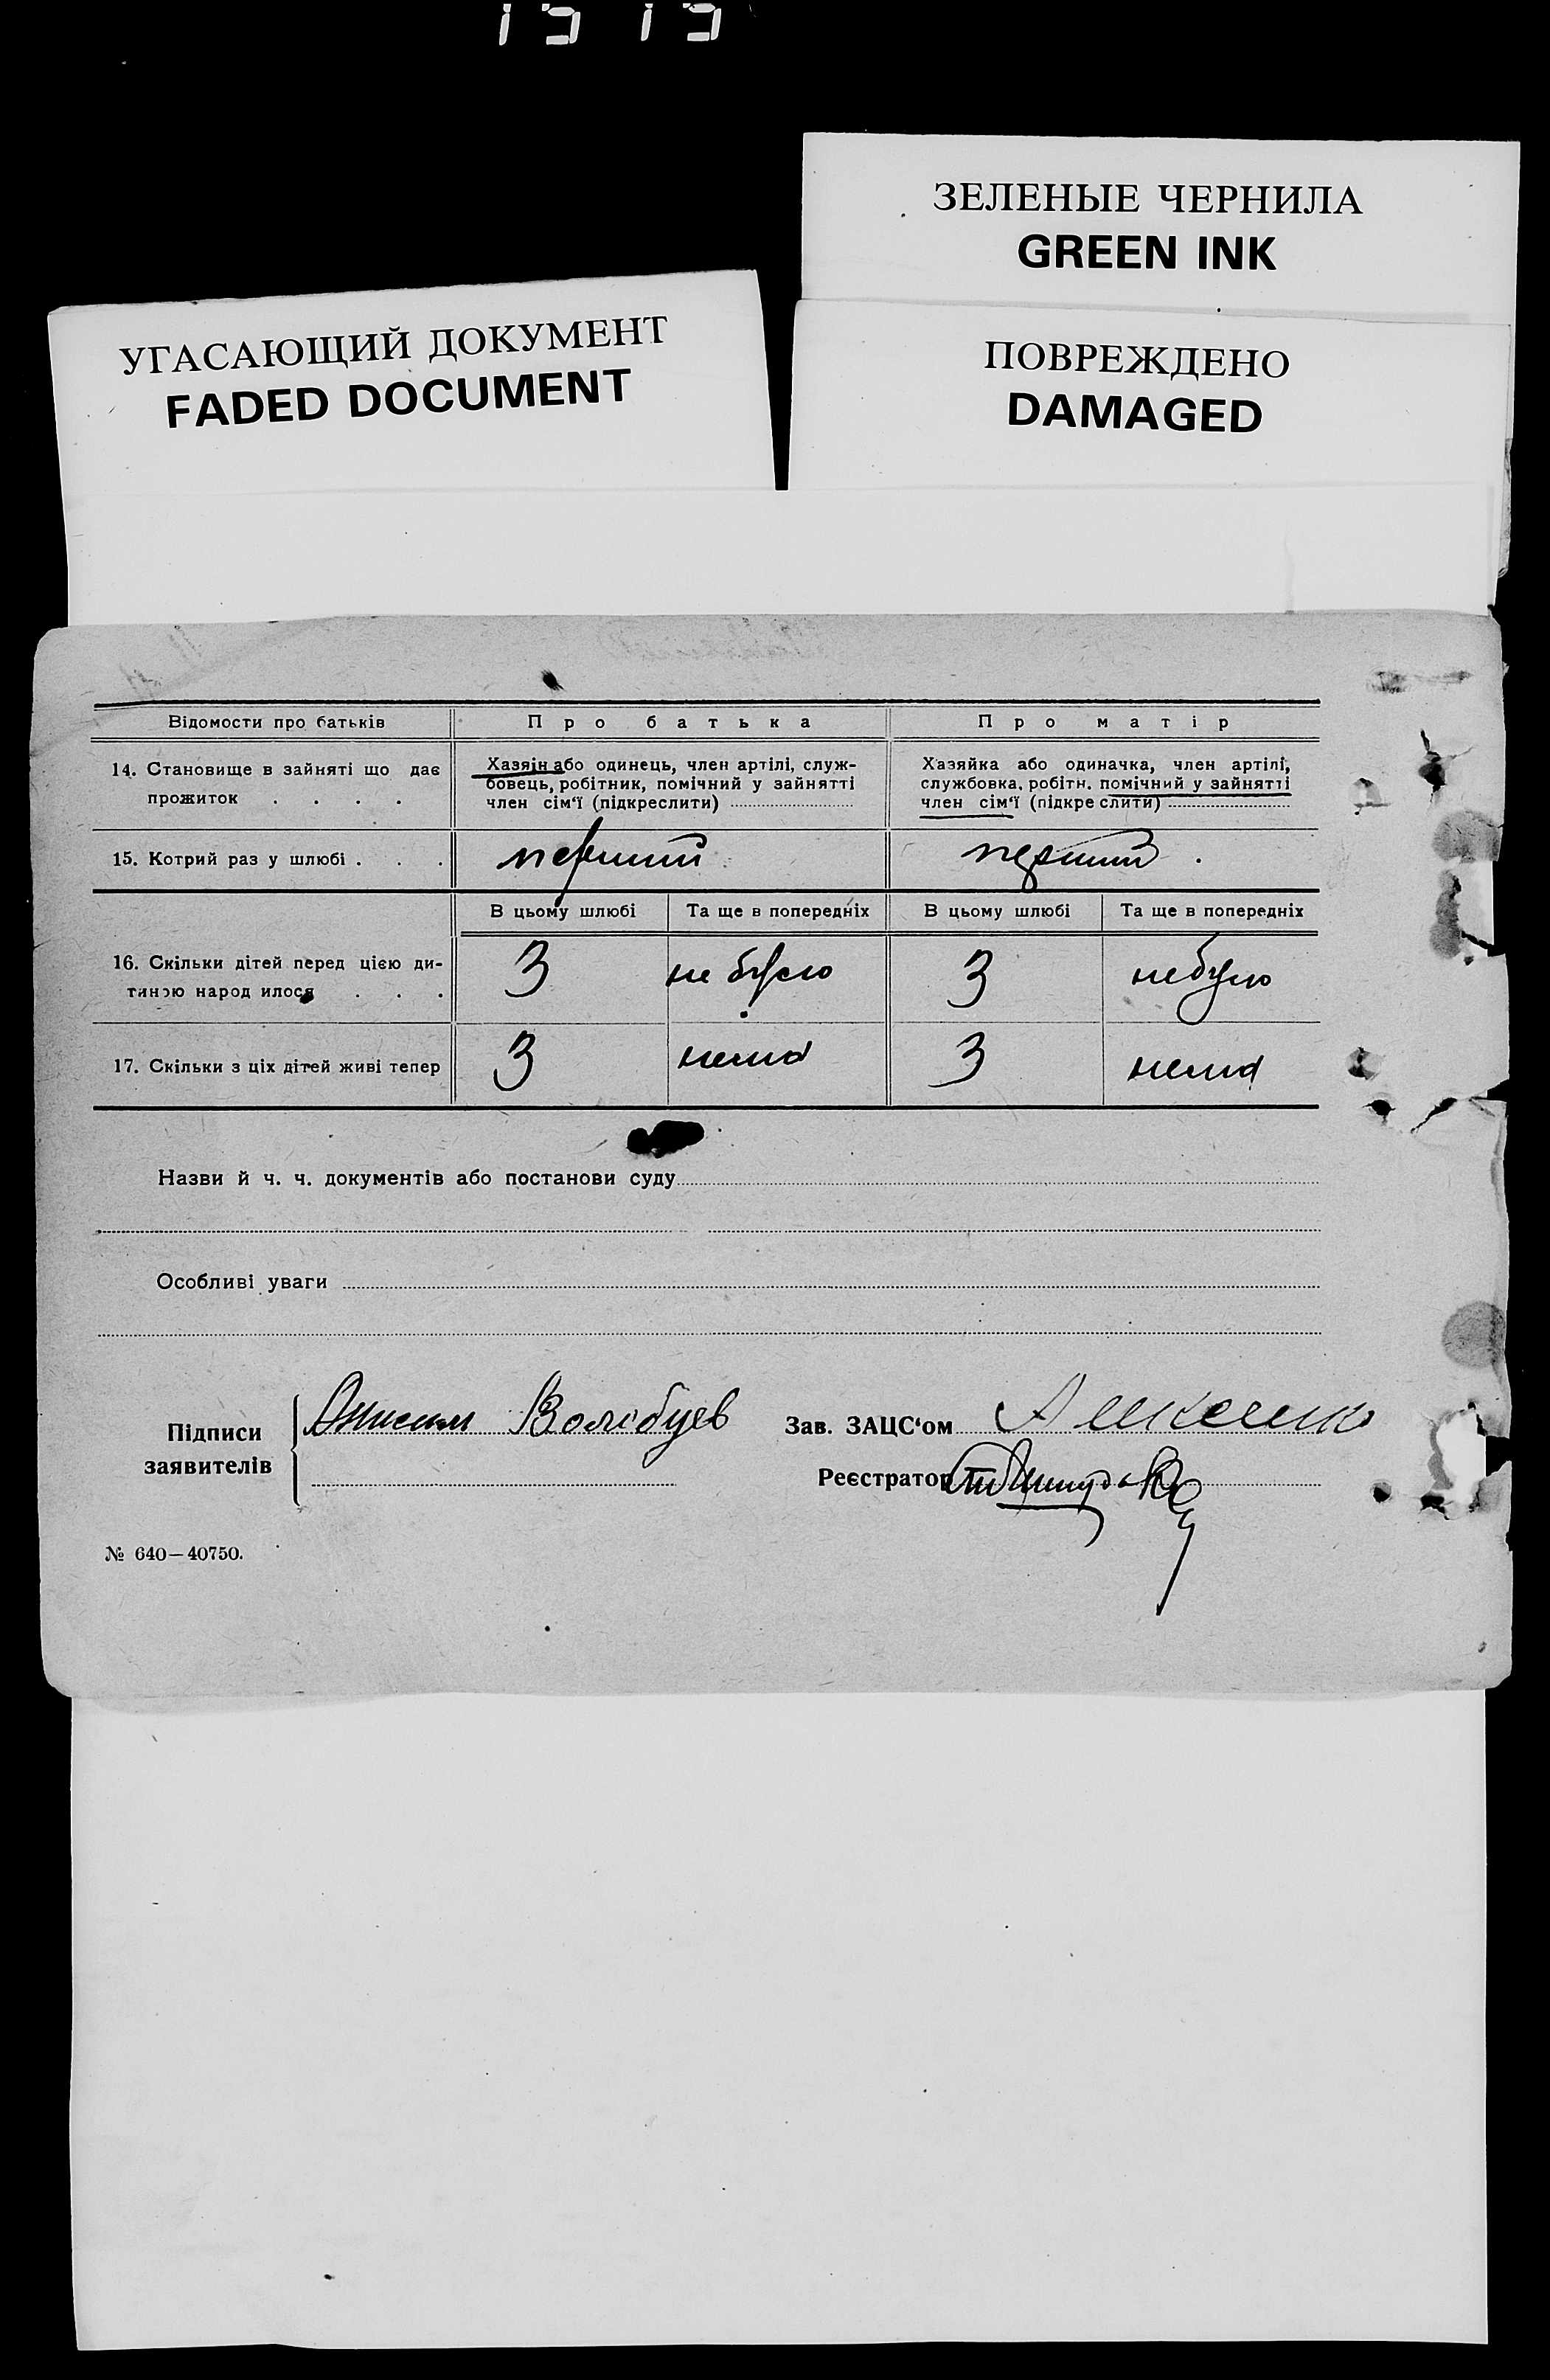 ЗЕЛЕНЫЕ ЧЕРНИЛА
GREEN INK
УГАСАЮЩИЙ ДОКУМЕНТ
FADED DOCUMENT
ПОВРЕЖДЕНО
DAMAGED
Відомости про батьків Про батька Про матір
14. Становище в зайняті що дає прожиток . . . .
Хазяін або одинець, член артілі, служ-
бовець, робітник, помічний у зайнятті
член сім'ї (підкреслити)
Хазяйка або одиначка, член артілі,
службовка, робітн. помічний у зайнятті
член сім'ї (підкреслити)
15. Котрий раз у шлюбі . . . перший перший
В цьому шлюбі Та ще в попередніх В цьому шлюбі Та ще в попередніх
16. Скільки дітей перед цією ди-
тиною народилося . . . 3 не було 3 небуло
17. Скільки з ціх дітей живі тепер 3 нема 3 нема
Назви й ч. ч. документів або постанови суду
Особливі уваги
Підписи
заявителів
Онисим Волобуев
Зав. ЗАЦС'ом
Реєстратор
№ 640—40750.